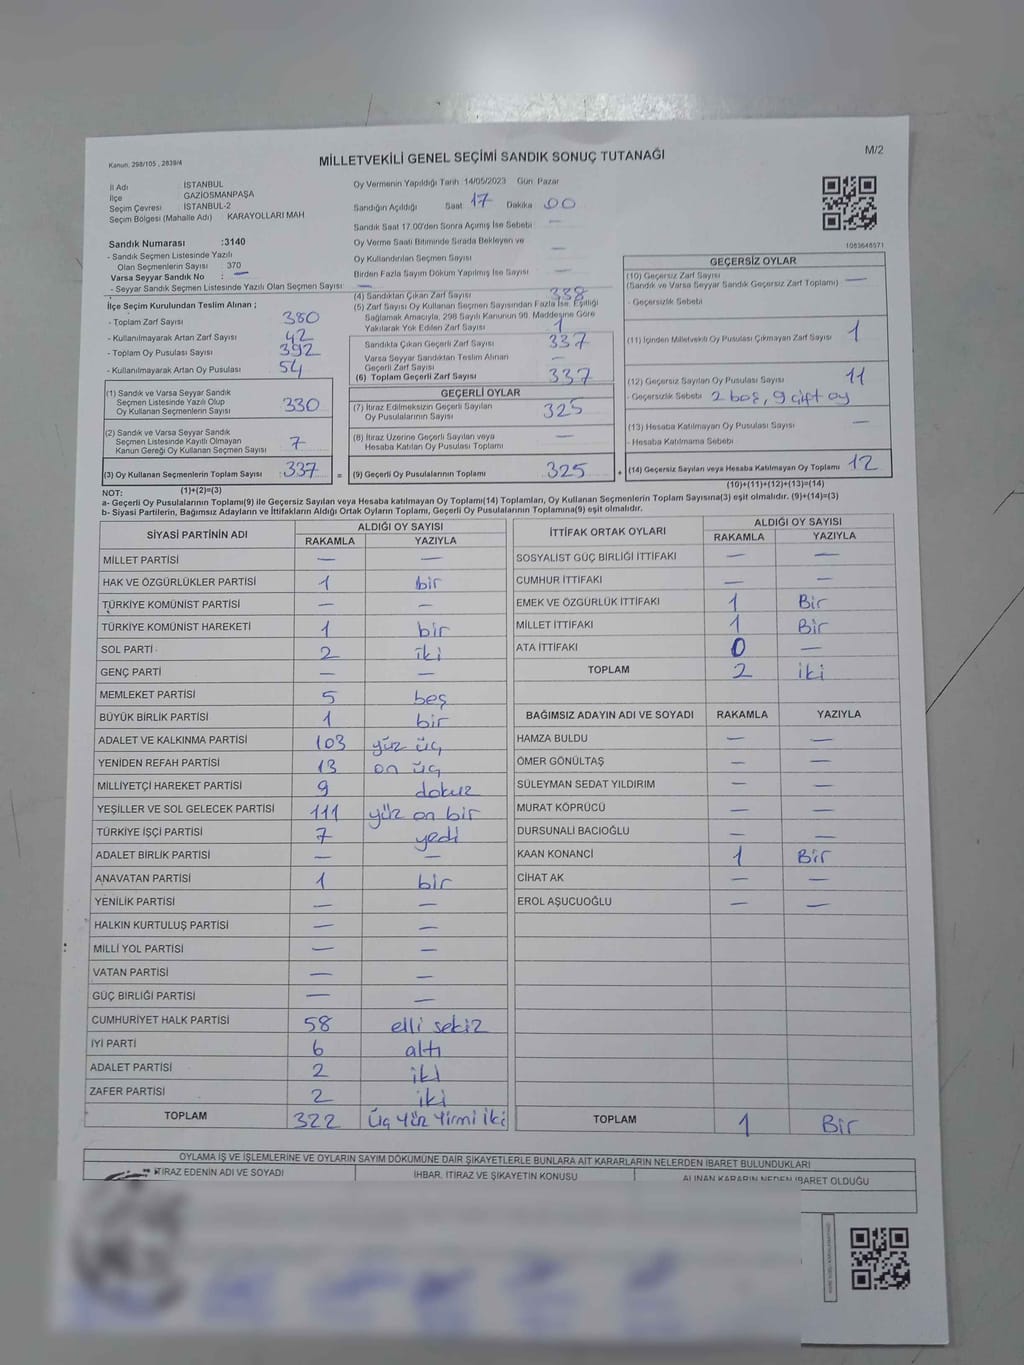 Kanun, 298/105 , 2839/4
MİLLETVEKİLİ GENEL SEÇİMİ SANDIK SONUÇ TUTANAĞI
M/2
İl Adı : İSTANBUL
İlçe : GAZİOSMANPAŞA
Seçim Çevresi : İSTANBUL-2
Seçim Bölgesi (Mahalle Adı) : KARAYOLLARI MAH
Sandık Numarası :3140
- Sandık Seçmen Listesinde Yazılı
Olan Seçmenlerin Sayısı : 370
Varsa Seyyar Sandık No : —
- Seyyar Sandık Seçmen Listesinde Yazılı Olan Seçmen Sayısı: —
İlçe Seçim Kurulundan Teslim Alınan ;
- Toplam Zarf Sayısı : 380
- Kullanılmayarak Artan Zarf Sayısı : 42
- Toplam Oy Pusulası Sayısı : 392
- Kullanılmayarak Artan Oy Pusulası : 54
(1) Sandık ve Varsa Seyyar Sandık
Seçmen Listesinde Yazılı Olup
Oy Kullanan Seçmenlerin Sayısı : 330
(2) Sandık ve Varsa Seyyar Sandık
Seçmen Listesinde Kayıtlı Olmayan
Kanun Gereği Oy Kullanan Seçmen Sayısı : 7
(3) Oy Kullanan Seçmenlerin Toplam Sayısı : 337
(1)+(2)=(3)
Oy Vermenin Yapıldığı Tarih :14/05/2023 Gün: Pazar
Sandığın Açıldığı Saat : 17 Dakika : 00
Sandık Saat 17.00'den Sonra Açımış İse Sebebi : —
Oy Verme Saati Bitiminde Sırada Bekleyen ve
Oy Kullandırılan Seçmen Sayısı : —
Birden Fazla Sayım Döküm Yapılmış İse Sayısı : —
(4) Sandıktan Çıkan Zarf Sayısı : 338
(5) Zarf Sayısı Oy Kullanan Seçmen Sayısından Fazla İse, Eşitliği
Sağlamak Amacıyla, 298 Sayılı Kanunun 98. Maddesine Göre
Yakılarak Yok Edilen Zarf Sayısı : 1
Sandıkta Çıkan Geçerli Zarf Sayısı : 337
Varsa Seyyar Sandıktan Teslim Alınan
Geçerli Zarf Sayısı : —
(6) Toplam Geçerli Zarf Sayısı : 337
GEÇERLİ OYLAR
(7) İtiraz Edilmeksizin Geçerli Sayılan
Oy Pusulalarının Sayısı : 325
(8) İtiraz Üzerine Geçerli Sayılan veya
Hesaba Katılan Oy Pusulası Toplamı : —
= (9) Geçerli Oy Pusulalarının Toplamı : 325
1083648571
GEÇERSİZ OYLAR
(10) Geçersiz Zarf Sayısı : —
(Sandık ve Varsa Seyyar Sandık Geçersiz Zarf Toplamı)
- Geçersizlik Sebebi :
(11) İçinden Milletvekili Oy Pusulası Çıkmayan Zarf Sayısı : 1
(12) Geçersiz Sayılan Oy Pusulası Sayısı : 11
- Geçersizlik Sebebi : 2 boş, 9 çift oy
(13) Hesaba Katılmayan Oy Pusulası Sayısı : —
- Hesaba Katılmama Sebebi :
+ (14) Geçersiz Sayılan veya Hesaba Katılmayan Oy Toplamı : 12
(10)+(11)+(12)+(13)=(14)
NOT:
a- Geçerli Oy Pusulalarının Toplamı(9) ile Geçersiz Sayılan veya Hesaba katılmayan Oy Toplamı(14) Toplamları, Oy Kullanan Seçmenlerin Toplam Sayısına(3) eşit olmalıdır. (9)+(14)=(3)
b- Siyasi Partilerin, Bağımsız Adayların ve İttifakların Aldığı Ortak Oyların Toplamı, Geçerli Oy Pusulalarının Toplamına(9) eşit olmalıdır.
SİYASİ PARTİNİN ADI ALDIĞI OY SAYISI
RAKAMLA YAZIYLA
MİLLET PARTİSİ — —
HAK VE ÖZGÜRLÜKLER PARTİSİ 1 bir
TÜRKİYE KOMÜNİST PARTİSİ — —
TÜRKİYE KOMÜNİST HAREKETİ 1 bir
SOL PARTİ 2 iki
GENÇ PARTİ — —
MEMLEKET PARTİSİ 5 beş
BÜYÜK BİRLİK PARTİSİ 1 bir
ADALET VE KALKINMA PARTİSİ 103 yüz üç
YENİDEN REFAH PARTİSİ 13 on üç
MİLLİYETÇİ HAREKET PARTİSİ 9 dokuz
YEŞİLLER VE SOL GELECEK PARTİSİ 111 yüz on bir
TÜRKİYE İŞÇİ PARTİSİ 7 yedi
ADALET BİRLİK PARTİSİ — —
ANAVATAN PARTİSİ 1 bir
YENİLİK PARTİSİ — —
HALKIN KURTULUŞ PARTİSİ — —
MİLLİ YOL PARTİSİ — —
VATAN PARTİSİ — —
GÜÇ BİRLİĞİ PARTİSİ — —
CUMHURİYET HALK PARTİSİ 58 elli sekiz
İYİ PARTİ 6 altı
ADALET PARTİSİ 2 iki
ZAFER PARTİSİ 2 iki
TOPLAM 322 Üç Yüz Yirmi iki
İTTİFAK ORTAK OYLARI ALDIĞI OY SAYISI
RAKAMLA YAZIYLA
SOSYALİST GÜÇ BİRLİĞİ İTTİFAKI — —
CUMHUR İTTİFAKI — —
EMEK VE ÖZGÜRLÜK İTTİFAKI 1 Bir
MİLLET İTTİFAKI 1 Bir
ATA İTTİFAKI 0 —
TOPLAM 2 iki
BAĞIMSIZ ADAYIN ADI VE SOYADI RAKAMLA YAZIYLA
HAMZA BULDU — —
ÖMER GÖNÜLTAŞ — —
SÜLEYMAN SEDAT YILDIRIM — —
MURAT KÖPRÜCÜ — —
DURSUNALİ BACIOĞLU — —
KAAN KONANCİ 1 Bir
CİHAT AK — —
EROL AŞUCUOĞLU — —
TOPLAM 1 Bir
OYLAMA İŞ VE İŞLEMLERİNE VE OYLARIN SAYIM DÖKÜMÜNE DAİR ŞİKAYETLERLE BUNLARA AİT KARARLARIN NELERDEN İBARET BULUNDUKLARI
İTİRAZ EDENİN ADI VE SOYADI İHBAR, İTİRAZ VE ŞİKAYETİN KONUSU ALINAN KARARIN NEDEN İBARET OLDUĞU